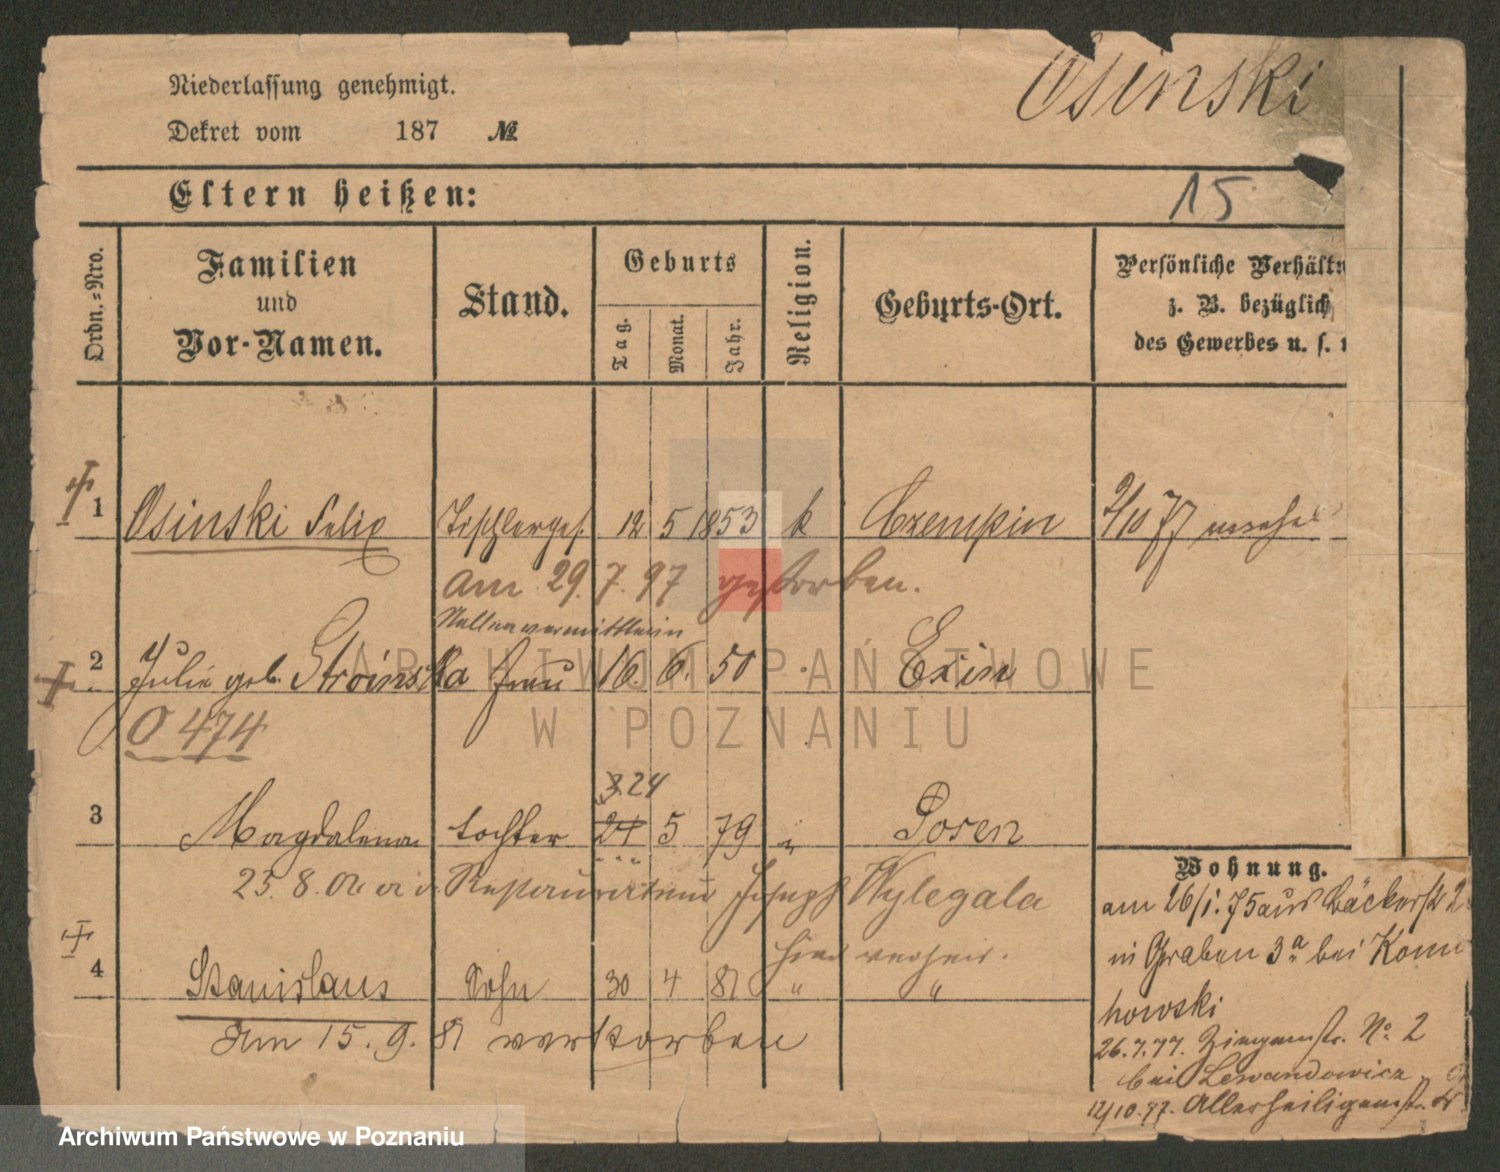 Osinski
Niederlassung genehmigt.
Dekret vom 187 №
Eltern heißen:
15
Ordn.=Nro.
Familien
und
Vor-Namen.
Stand.
Geburts
Tag.
Monat.
Jahr.
Religion.
Geburts-Ort.
Persönliche Verhältn
z. B. bezüglich
des Gewerbes u. s.
1 Osinski Felix Tischlerges. 12 5 1853 k Czempin 2/10 77
am 29. 7. 97 gestorben.
Stellenvermittlerin
2 Julie geb. Stroinska Frau 16. 6. 50 Exin
O 474
24
3 Magdalena Tochter 21 5 79 " Posen
25. 8. 02 Restaurateur Joseph Wylegala
hier verheir.
4 Stanislaus Sohn 30 4 81 " "
Am 15. 9. 81 verstorben
Wohnung.
am 26/1. 75 aus Bäckerstr 2
in Graben 3a bei Kom
nowski
26. 7. 77. No. 2
bei Lewandowicz
12/10. 77. Allerheiligenstr.
ARCHIWUM PAŃSTWOWE
W POZNANIU
Archiwum Państwowe w Poznaniu